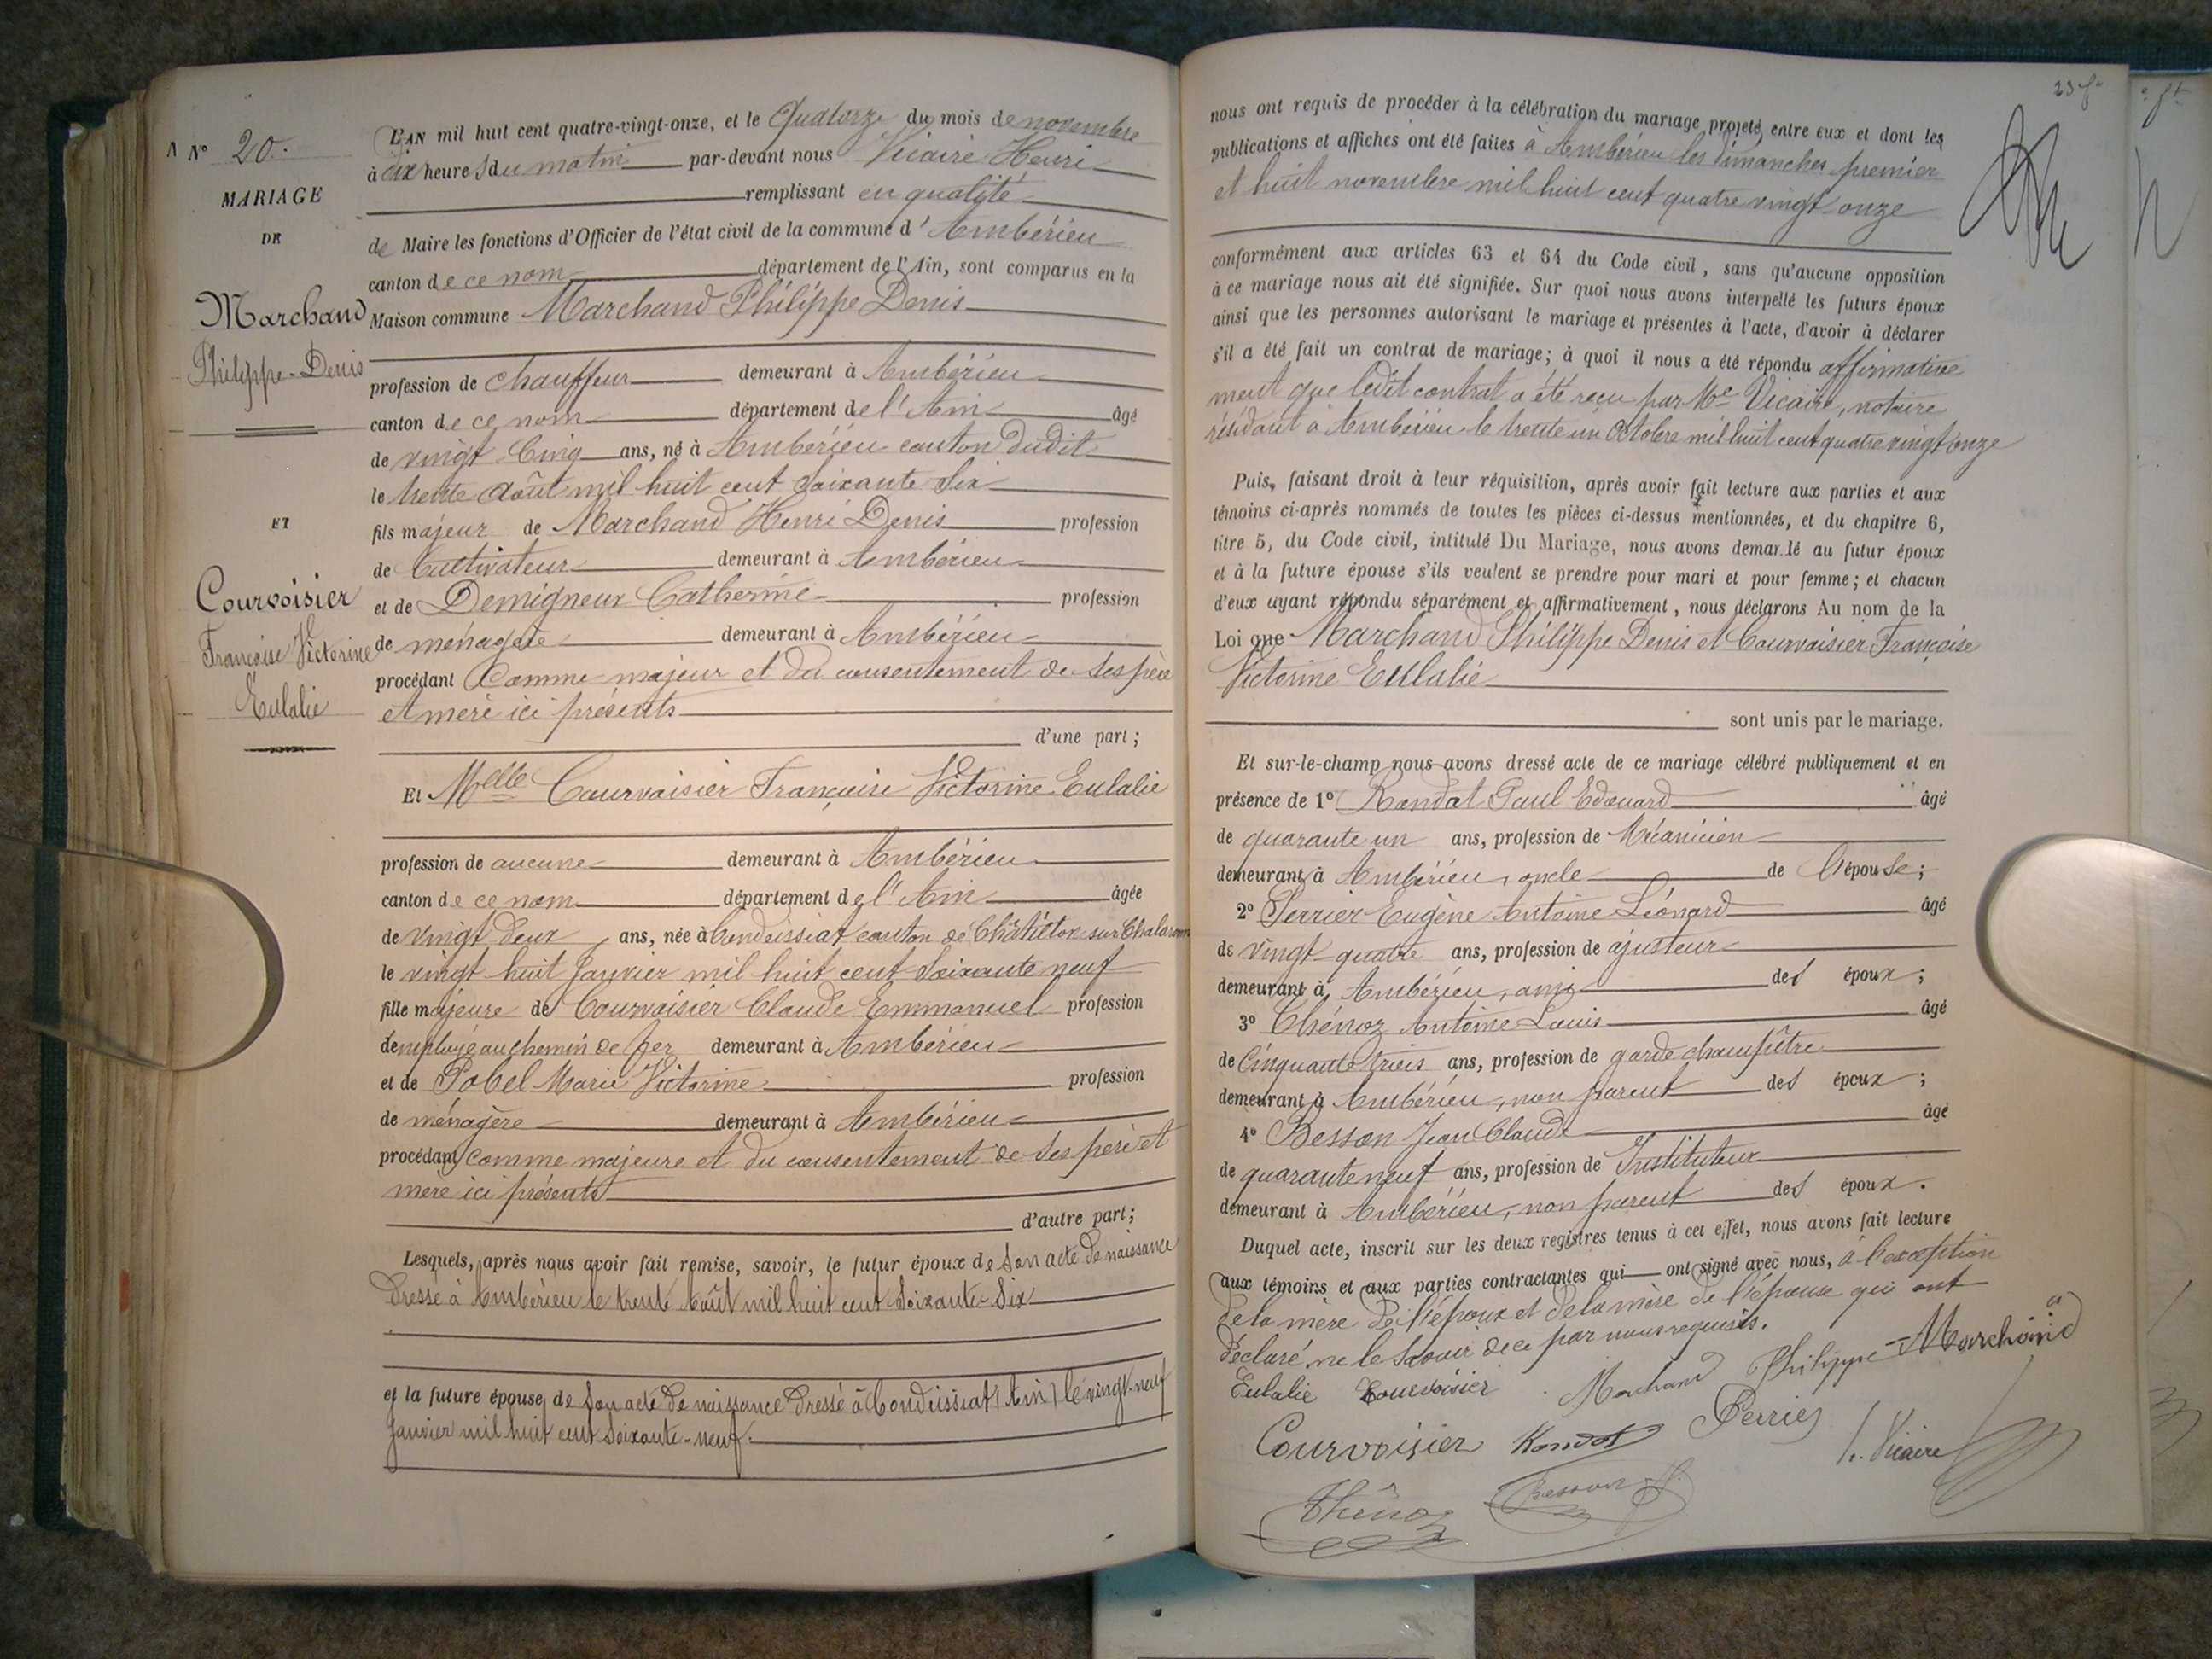 N° 20.
MARIAGE
DE
Marchand
Philippe-Denis
ET
Courvoisier
Françoise Victorine
Eulalie
L'AN mil huit cent quatre-vingt-onze, et le Quatorze du mois de novembre
à dix heures du matin par-devant nous Vicaire Henri
remplissant en qualité
de Maire les fonctions d'Officier de l'état civil de la commune d'Ambérieu
canton de ce nom département de l'Ain, sont comparus en la
Maison commune Marchand Philippe Denis
profession de chauffeur demeurant à Ambérieu
canton de ce nom département de l'Ain âgé
de vingt Cinq ans, né à Ambérieu canton dudit
le trente Août mil huit cent soixante six
fils majeur de Marchand Henri Denis profession
de Cultivateur demeurant à Ambérieu
et de Demigneux Catherine profession
de ménagère demeurant à Ambérieu
procédant Comme majeur et du consentement de ses père
et mère ici présents
d'une part;
Et Melle Courvoisier Françoise Victorine Eulalie
profession de aucune demeurant à Ambérieu
canton de ce nom département de l'Ain âgée
de vingt deux ans, née à Condeissiat canton de Châtillon sur Chalaronne
le vingt huit Janvier mil huit cent soixante neuf
fille majeure de Courvoisier Claude Emmanuel profession
d'employé au chemin de fer demeurant à Ambérieu
et de Pobel Marie Victorine profession
de ménagère demeurant à Ambérieu
procédant comme majeure et du consentement de ses père et
mère ici présents
d'autre part;
Lesquels, après nous avoir fait remise, savoir, le futur époux de son acte de naissance
dressé à Ambérieu le trente Août mil huit cent soixante-six
et la future épouse, de son acte de naissance dressé à Condeissiat (Ain) le vingt-neuf
Janvier mil huit cent soixante-neuf.
23 f°
nous ont requis de procéder à la célébration du mariage projeté entre eux et dont les
publications et affiches ont été faites à Ambérieu les dimanches premier
et huit novembre mil huit cent quatre vingt onze
conformément aux articles 63 et 64 du Code civil, sans qu'aucune opposition
à ce mariage nous ait été signifiée. Sur quoi nous avons interpellé les futurs époux
ainsi que les personnes autorisant le mariage et présentes à l'acte, d'avoir à déclarer
s'il a été fait un contrat de mariage; à quoi il nous a été répondu affirmative
ment que ledit contrat a été reçu par Me Vicaire, notaire
résidant à Ambérieu le trente un Octobre mil huit cent quatre vingt onze
Puis, faisant droit à leur réquisition, après avoir fait lecture aux parties et aux
témoins ci-après nommés de toutes les pièces ci-dessus mentionnées, et du chapitre 6,
titre 5, du Code civil, intitulé Du Mariage, nous avons demandé au futur époux
et à la future épouse s'ils veulent se prendre pour mari et pour femme; et chacun
d'eux ayant répondu séparément et affirmativement, nous déclarons Au nom de la
Loi que Marchand Philippe Denis et Courvoisier Françoise
Victorine Eulalie
sont unis par le mariage.
Et sur-le-champ nous avons dressé acte de ce mariage célébré publiquement et en
présence de 1° Rondot Paul Edouard âgé
de quarante un ans, profession de Mécanicien
demeurant à Ambérieu, oncle de l'épouse;
2° Perrier Eugène Antoine Léonard âgé
de vingt quatre ans, profession de ajusteur
demeurant à Ambérieu, ami des époux;
3° Thénoz Antoine Louis âgé
de Cinquante trois ans, profession de garde champêtre
demeurant à Ambérieu, non parent des époux;
4° Besson Jean Claude âgé
de quarante neuf ans, profession de Instituteur
demeurant à Ambérieu, non parent des époux.
Duquel acte, inscrit sur les deux registres tenus à cet effet, nous avons fait lecture
aux témoins et aux parties contractantes qui ont signé avec nous, à l'exception
de la mère de l'époux et de la mère de l'épouse qui ont
déclaré ne le savoir de ce par nous requises.
Eulalie Courvoisier Marchand Philippe Marchand
Courvoisier Rondot Perrier H. Vicaire
Thénoz Besson